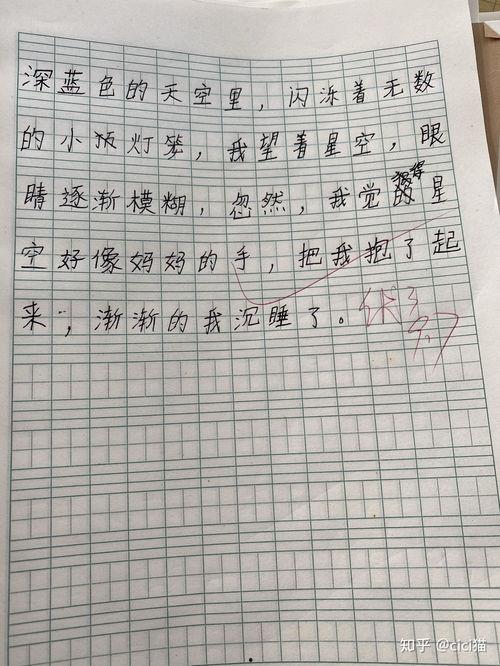 深蓝色的天空里，闪泺着无数
的小瓶灯笼，我望着星空，眼
睛逐渐模糊，忽然，我觉得星
空好像妈妈的手，把我抱了起
来，渐渐的我沉睡了。
知乎 @cici猫